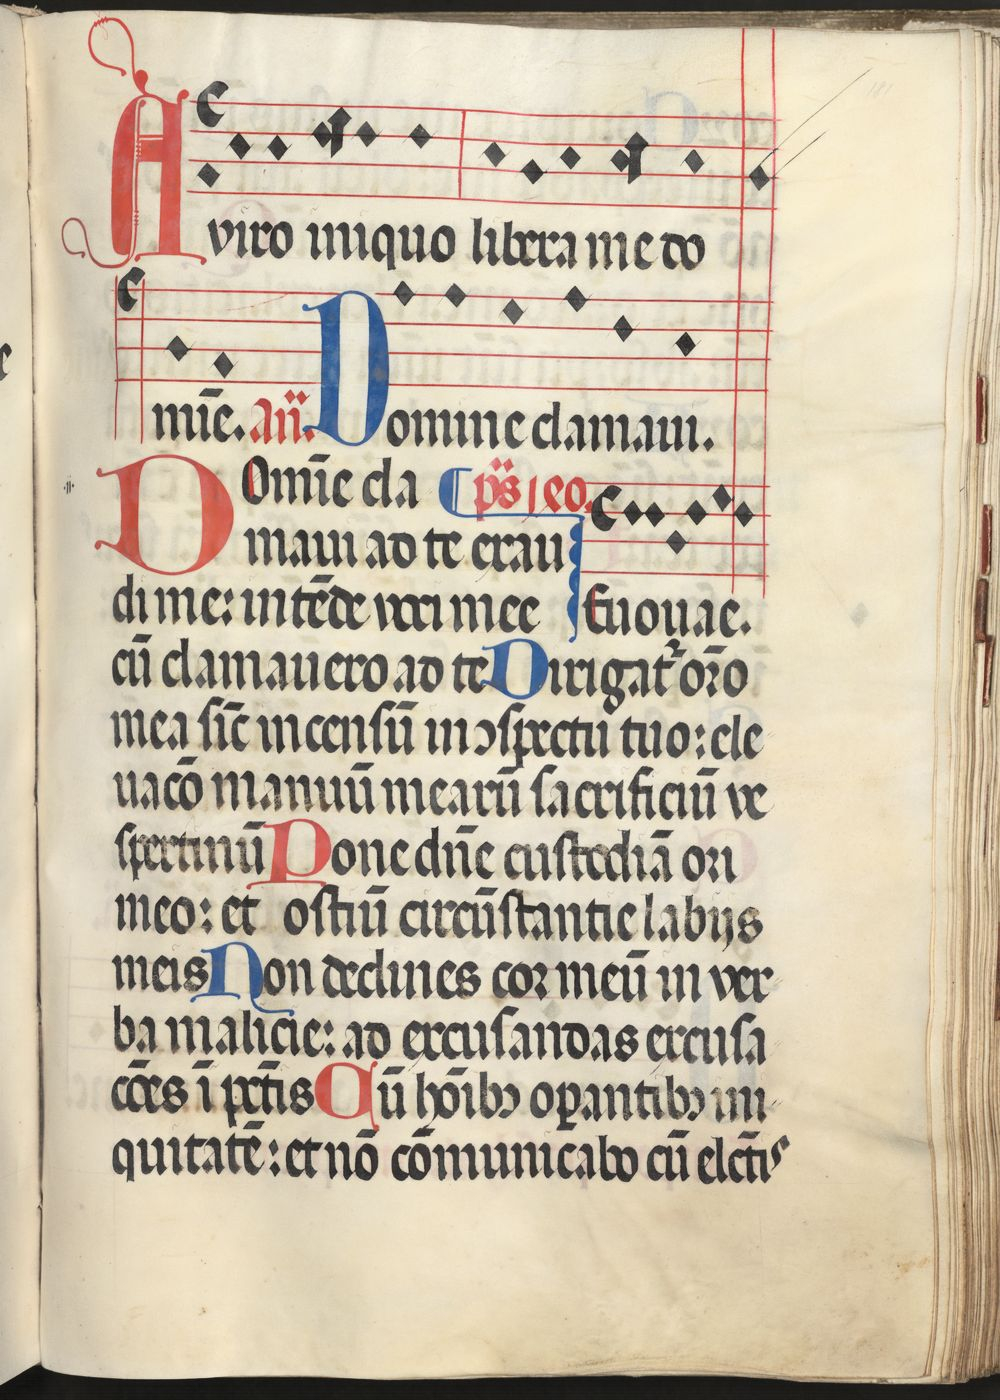 A viro iniquo libera me do
mīe. Añ. Domine clamaui.
Domīe cla ps ieo.
maui ad te exau
di me: intēde voci mee Euouae.
cū clamauero ad te Dirigat᷑ oro
mea sic̄ incensū in ↄspectu tuo: ele
uacō manuū mearū sacrificiū ve
spertinū Pone dñe custodiā ori
meo: et ostiū circūstantie labijs
meis Non declines cor meū in ver
ba malicie: ad excusandas excusa
cōes ī pctīs Cū hoībꝰ oꝑantibꝰ ini
quitatē: et nō cōmunicabo cū elctīs